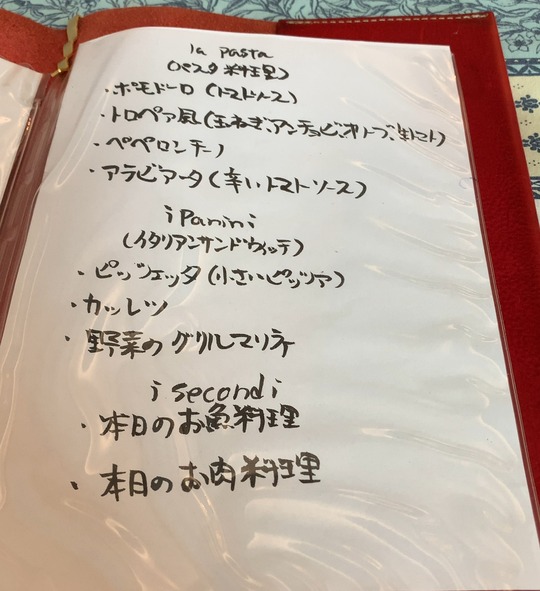 la pasta
(パスタ料理)
・ポモドーロ(トマトソース)
・トロペア風(玉ねぎ、アンチョビ、オリーブ、生トマト)
・ペペロンチーノ
・アラビアータ(辛いトマトソース)
i Panini
(イタリアンサンドウィッチ)
・ピッツェッタ(小さいピッツア)
・カツレツ
・野菜のグリルマリネ
i secondi
・本日のお魚料理
・本日のお肉料理